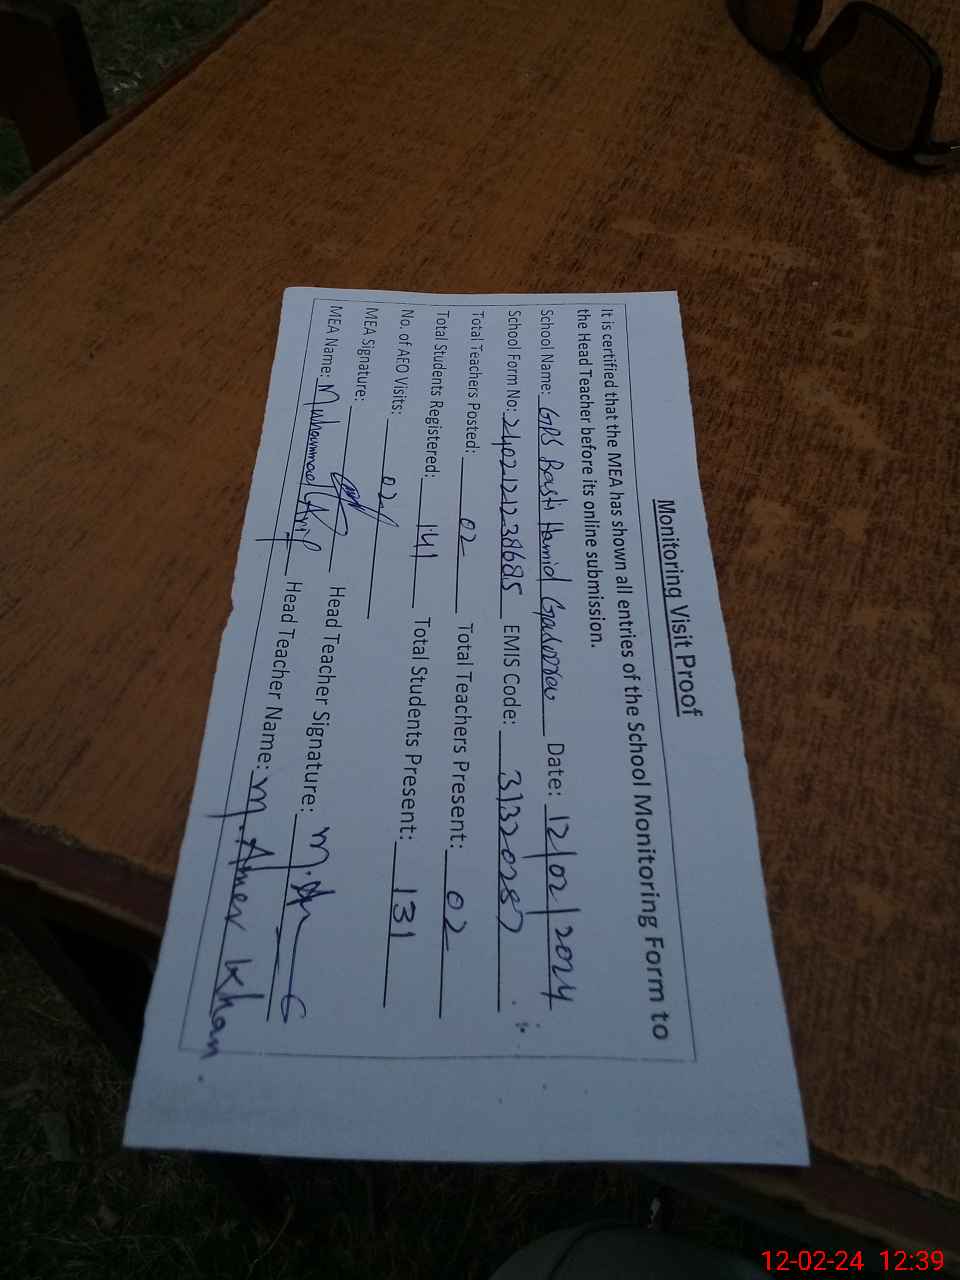 Monitoring Visit Proof
It is certified that the MEA has shown all entries of the School Monitoring Form to
the Head Teacher before its online submission.
School Name: GPS Basti Hamid Date: 12/02/2024
School Form No: 2402121238685 EMIS Code: 31320287
Total Teachers Posted: 02 Total Teachers Present: 02
Total Students Registered: 141 Total Students Present: 131
No. of AEO Visits: 02
MEA Signature: Head Teacher Signature:
MEA Name: Muhammad Arif Head Teacher Name: M. Ameer Khan
12-02-24 12:39